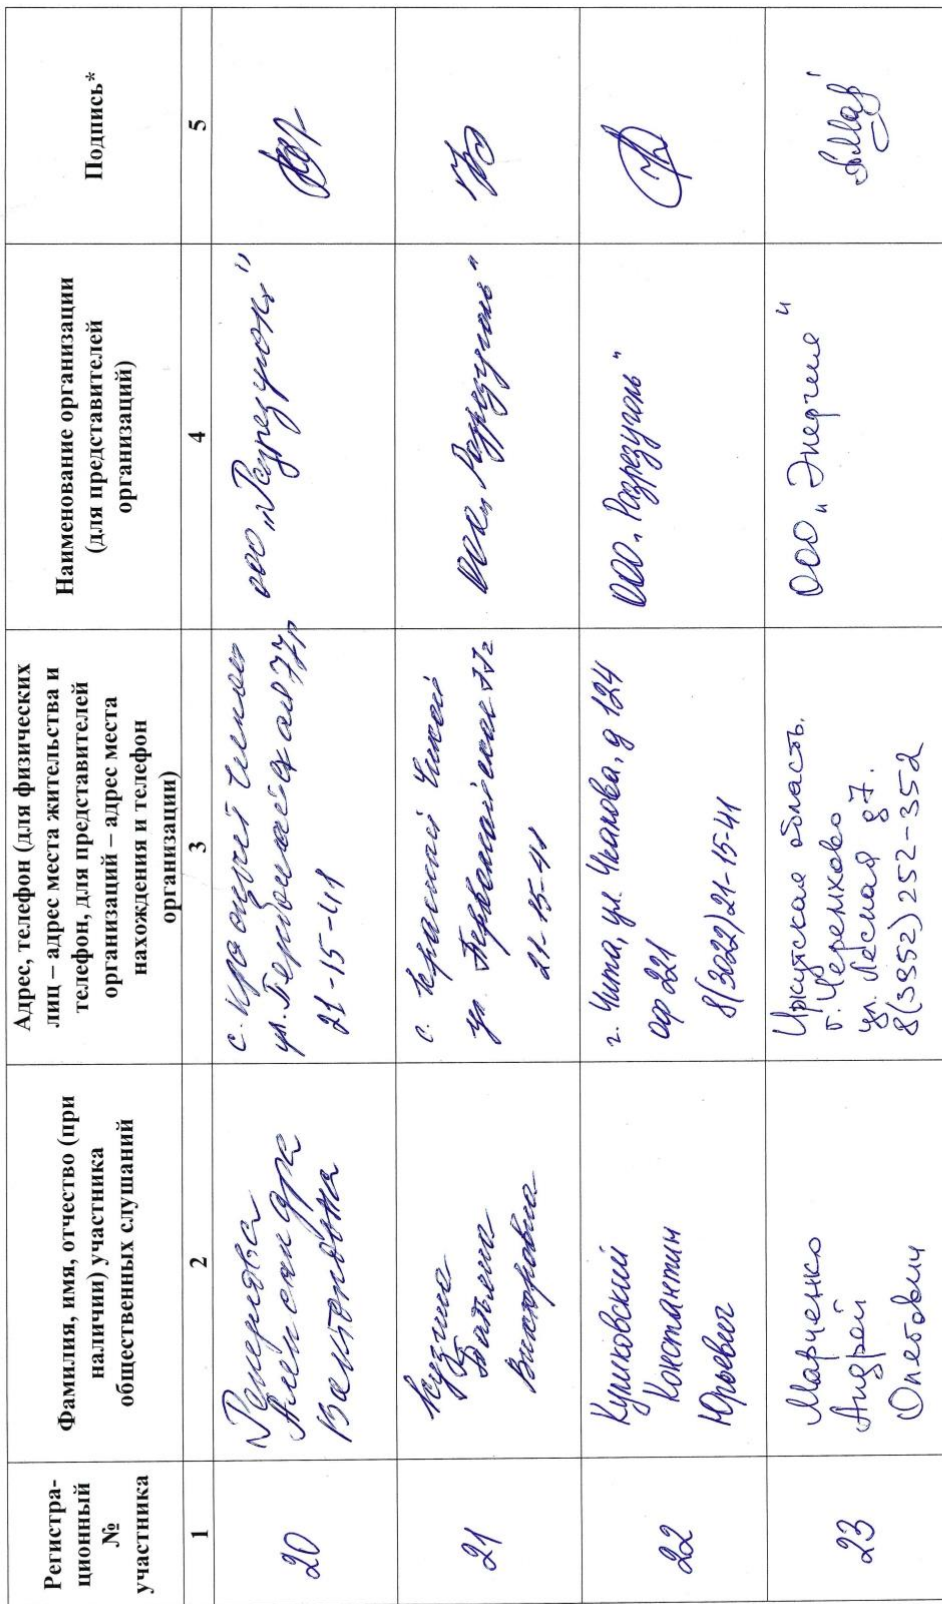 Регистра-
ционный
№
участника
Фамилия, имя, отчество (при
наличии) участника
общественных слушаний
Адрес, телефон (для физических
лиц – адрес места жительства и
телефон, для представителей
организаций – адрес места
нахождения и телефон
организации)
Наименование организации
(для представителей
организаций)
Подпись*
1
2
3
4
5
20
Александра
с.
ул.
21-15-41
ООО „Разрезуголь"
21
Викторовна
с. Красный Чикой
ул. Первомайская 77г
21-15-41
ООО „Разрезуголь"
22
Куликовский
Константин
Юрьевич
г. Чита, ул. Чкалова, д 124
оф 221
8(3022)21-15-41
ООО „Разрезуголь"
23
Марченко
Андрей
Олегович
Иркутская область.
г. Черемхово
ул. Лесная 87.
8(3952)252-352
ООО „Энергия"